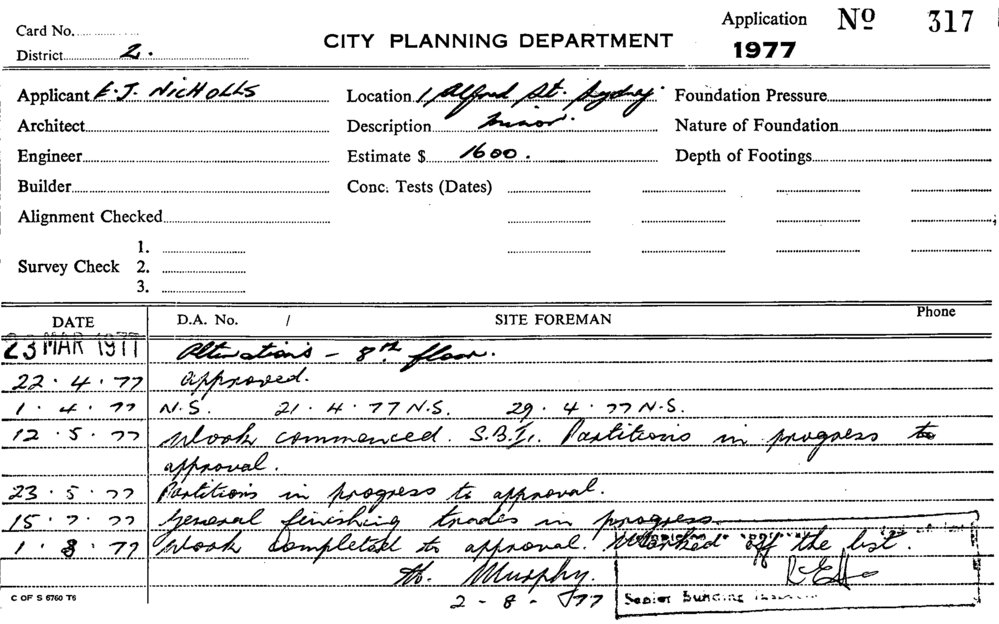 Card No.
District 2.
CITY PLANNING DEPARTMENT
Application Nº 317
1977
Applicant E.J. NICHOLLS
Location 1, Alfred St. Sydney.
Foundation Pressure
Architect
Description minor.
Nature of Foundation
Engineer
Estimate $ 1600.
Depth of Footings
Builder
Conc. Tests (Dates)
Alignment Checked
Survey Check
1.
2.
3.
DATE D.A. No. / SITE FOREMAN Phone
23 MAR 1977 Alterations - 8th floor.
22 . 4 . 77 approved.
1 . 4 . 77 N.S. 21 . 4 . 77 N.S. 29 . 4 . 77 N.S.
12 . 5 . 77 Work commenced. S.B.I. Partitions in progress to
approval.
23 . 5 . 77 Partitions in progress to approval.
15 . 7 . 77 General finishing trades in progress.
1 . 8 . 77 Work completed to approval. Marked off the list.
Murphy.
2 - 8 - 77
Senior Building
C OF S 6760 T6